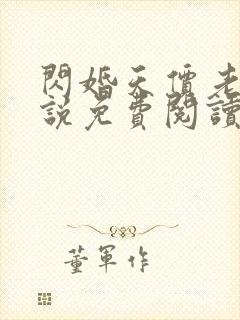 閃婚天價老
說免費閱讀
董軍作